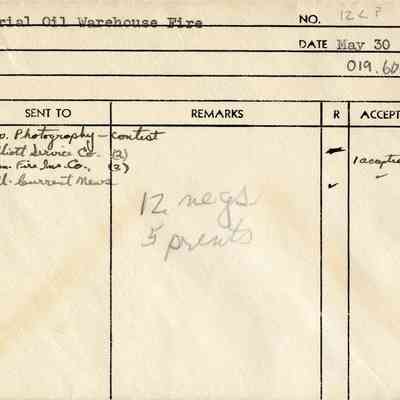 rial Oil Warehouse Fire
NO. 12<P
DATE May 30
019.60
SENT TO REMARKS R ACCEPT
o. Photography - contest
liott Service Co. (2)
n. Fire Ins. Co., (2) 1 accepted
l. Current News
12 negs
5 prints